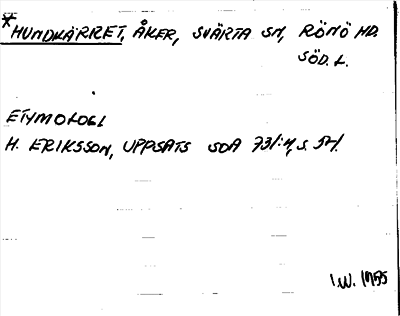 *HUNDKÄRRET, ÅKER, SVÄRTA SN, RÖNÖ HD.
SÖD. L.
ETYMOLOGI
H. ERIKSSON, UPPSATS SOA 731:4, S. 54.
I.W. 1955